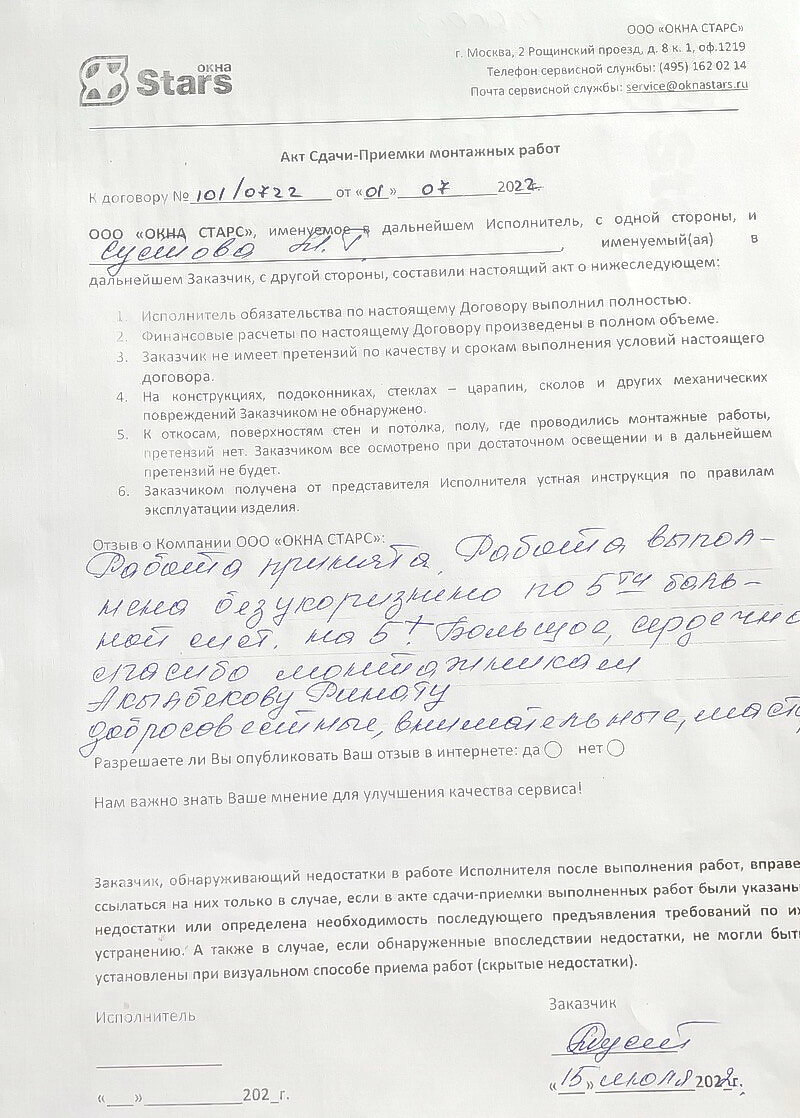 ООО «ОКНА СТАРС»
г. Москва, 2 Рощинский проезд, д. 8 к. 1, оф.1219
Телефон сервисной службы: (495) 162 02 14
Почта сервисной службы: service@oknastars.ru
окна
Stars
Акт Сдачи-Приемки монтажных работ
К договору № 101/0722 от «01» 07 2022г.
ООО «ОКНА СТАРС», именуемое в дальнейшем Исполнитель, с одной стороны, и
, именуемый(ая) в
дальнейшем Заказчик, с другой стороны, составили настоящий акт о нижеследующем:
1. Исполнитель обязательства по настоящему Договору выполнил полностью.
2. Финансовые расчеты по настоящему Договору произведены в полном объеме.
3. Заказчик не имеет претензий по качеству и срокам выполнения условий настоящего
договора.
4. На конструкциях, подоконниках, стеклах – царапин, сколов и других механических
повреждений Заказчиком не обнаружено.
5. К откосам, поверхностям стен и потолка, полу, где проводились монтажные работы,
претензий нет. Заказчиком все осмотрено при достаточном освещении и в дальнейшем
претензий не будет.
6. Заказчиком получена от представителя Исполнителя устная инструкция по правилам
эксплуатации изделия.
Отзыв о Компании ООО «ОКНА СТАРС»:
Работа принята. Работа выпол-
нена безукоризнено по 5ти баль-
ной сист. на 5! Большое, сердечно
спасибо монтажникам
Акынбекову Ринату
добросовестные, внимательные, маст
Разрешаете ли Вы опубликовать Ваш отзыв в интернете: да нет
Нам важно знать Ваше мнение для улучшения качества сервиса!
Заказчик, обнаруживающий недостатки в работе Исполнителя после выполнения работ, вправе
ссылаться на них только в случае, если в акте сдачи-приемки выполненных работ были указаны
недостатки или определена необходимость последующего предъявления требований по их
устранению. А также в случае, если обнаруженные впоследствии недостатки, не могли быть
установлены при визуальном способе приема работ (скрытые недостатки).
Исполнитель
Заказчик
«___»__________202_г.
«15» июля 2022г.